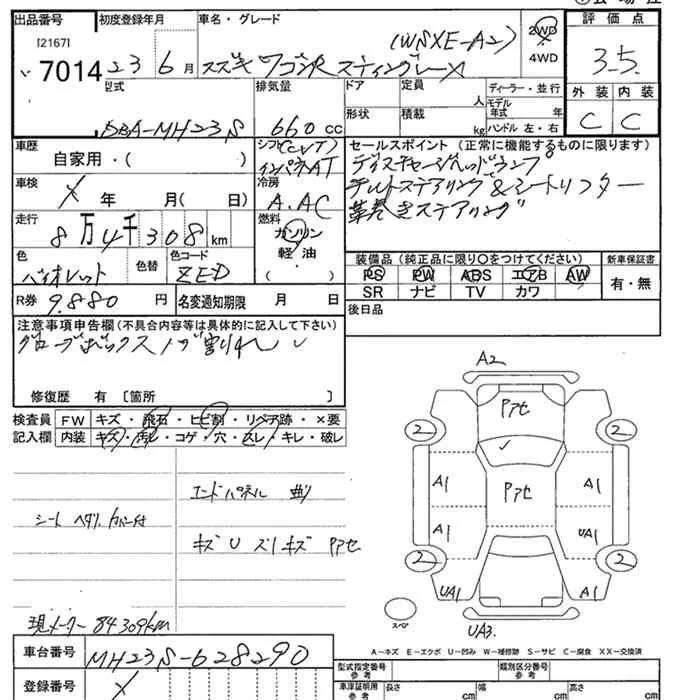 出品番号 初度登録年月 車名・グレード 評価点
[2167]
7014 23 6月 スズキ ワゴンR スティングレー X (WSXE-A2) 2WD 3.5
4WD
型式 排気量 ドア 定員 人 ディーラー・並行 外装 内装
モデル年式 年
DBA-MH23S 660 cc 形状 積載 kg ハンドル 左・右 C C
車歴 シフト(CVT) セールスポイント (正常に機能するものに限ります)
自家用・( ) インパネAT ディスチャージヘッドランプ
車検 冷房 チルトステアリング&シートリフター
X 年 月( 日) A.AC 革巻きステアリング
走行 燃料
8万4千308km ガソリン
軽油
( )
色 色替 色コード 装備品 (純正品に限り○をつけてください) 新車保証書
バイオレット ZED PS PW ABS エアB AW 有・無
SR ナビ TV カワ
R券 9.880 円 名変通知期限 月 日 後日品
注意事項申告欄(不具合内容等は具体的に記入して下さい)
グローブボックスノブ割れ
修復歴 有 [箇所 ]
検査員 FW キズ・飛石・ヒビ割・リペア跡・×要
記入欄 内装 キズ・汚レ・コゲ・穴・スレ・キレ・破レ
エンドパネル 曲
シート ヘタリ カバー付
キズ U スリキズ アセ
現メーター 84309km
A2
アセ
2 2
A1 アセ A1
A1 UA1
2 2
UA1 A1
スペア UA3.
A-キズ E-エクボ U-凹み W-補修跡 S-サビ C-腐食 XX-交換済
車台番号 MH23S-628290
登録番号 X
型式指定番号 参考 類別区分番号 参考
車庫証明用 参考 長さ cm 幅 cm 高さ cm